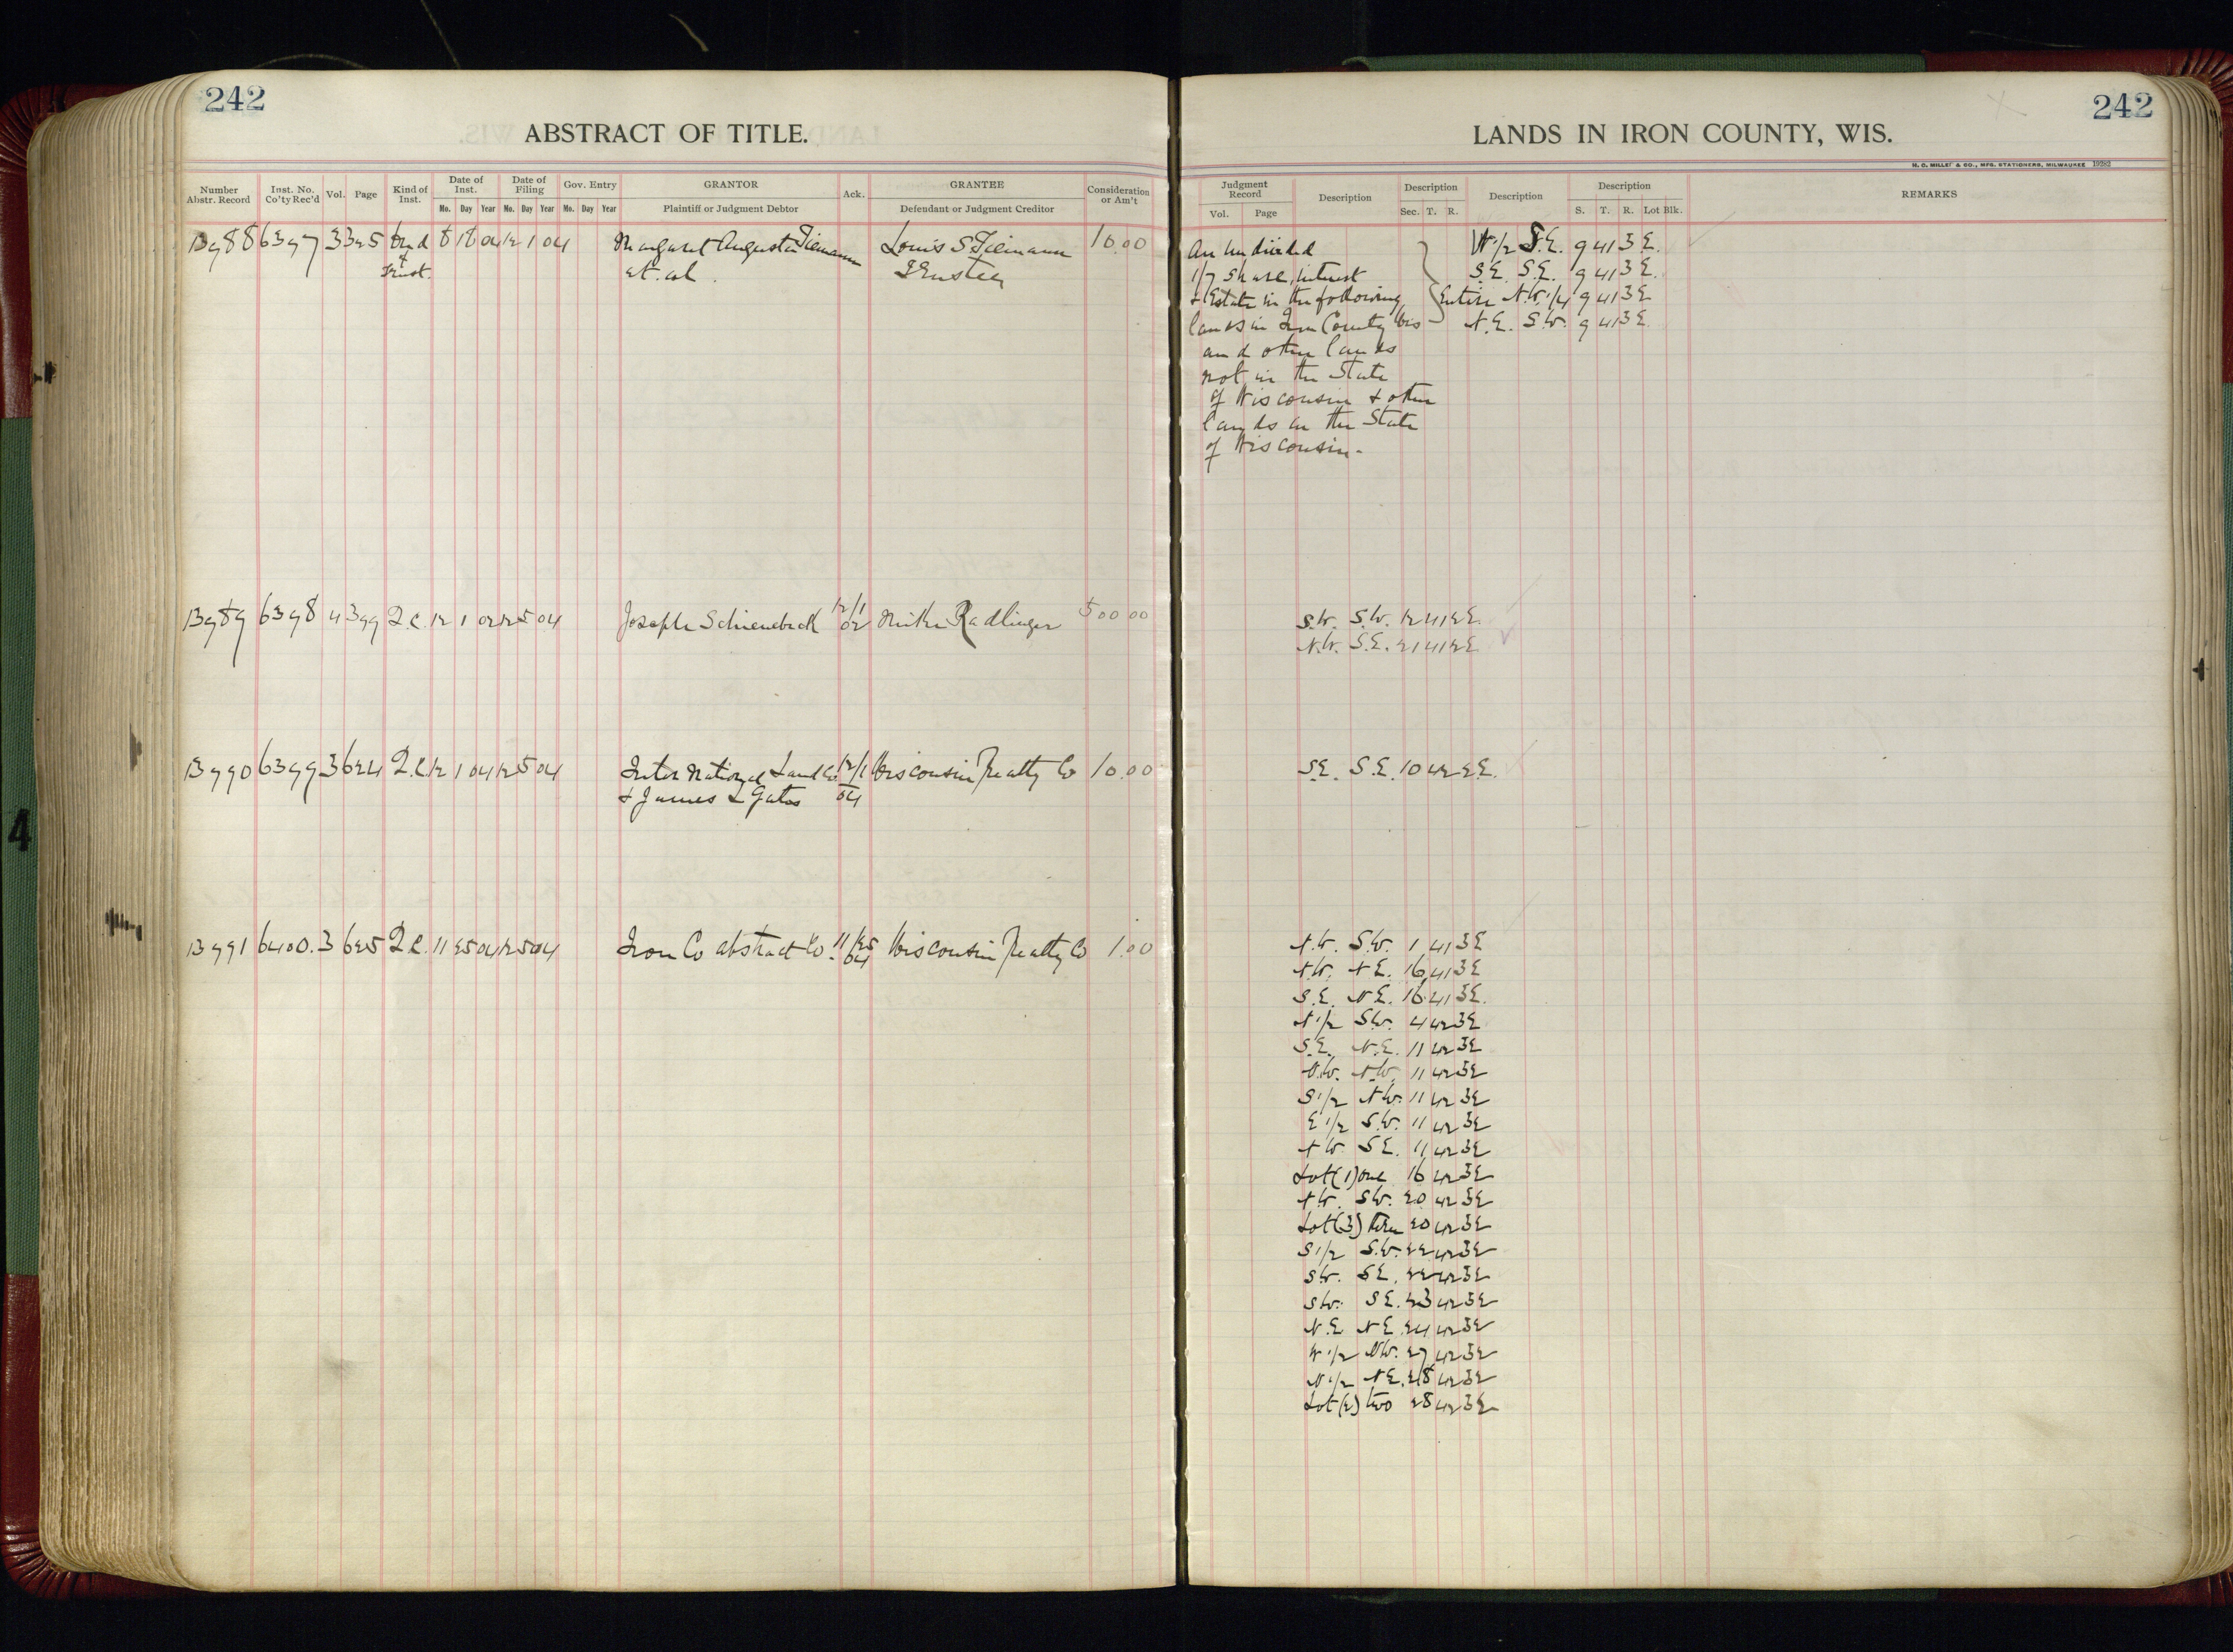 242
ABSTRACT OF TITLE.
Number Abstr. Record | Inst. No. Co'ty Rec'd | Vol. | Page | Kind of Inst. | Date of Inst. Mo. Day Year | Date of Filing Mo. Day Year | Gov. Entry Mo. Day Year | GRANTOR Plaintiff or Judgment Debtor | Ack. | GRANTEE Defendant or Judgment Creditor | Consideration or Am't
13988 6397 3 325 Deed 8 18 04 12 1 04 Margaret Augusta Tiemann Louis S Tiemann 10.00
of Trust. et. al. Trustee
13989 6398 4 399 Q.C. 12 1 02 12 5 04 Joseph Schienebeck 12/1 02 Mike Radlinger 500 00
13990 6399 3 624 Q.C. 12 1 04 12 5 04 Inter National Land Co 12/1 Wisconsin Realty Co 10.00
& James L Gates 04
13991 6400. 3 625 Q.C. 11 25 04 12 5 04 Iron Co Abstract Co. 11/25 04 Wisconsin Realty Co 1.00
242
LANDS IN IRON COUNTY, WIS.
H. C. MILLER & CO., MFG. STATIONERS, MILWAUKEE 19282
Judgment Record Vol. Page | Description | Description Sec. T. R. | Description | Description S. T. R. Lot Blk. | REMARKS
An undivided W 1/2 S.E. 9 41 3 E.
1/7 share, interest S.E. S.E. 9 41 3 E.
& Estate in the following Entire N.W. 1/4 9 41 3 E
lands in Iron County Wis N.E. S.W. 9 41 3 E.
and other lands
not in the State
of Wisconsin & other
lands in the State
of Wisconsin.
S.W. S.W. 12 41 2 E.
N.W. S.E. 21 41 2 E.
S.E. S.E. 10 42 2 E.
N.W. S.W. 1 41 3 E
N.W. N E. 16 41 3 E
S.E. N E. 16 41 3 E.
N 1/2 S.W. 4 42 3 E
S.E. N.E. 11 42 3 E
N.W. N.W. 11 42 3 E
S 1/2 N.W. 11 42 3 E
E 1/2 S.W. 11 42 3 E
N W S E. 11 42 3 E
Lot (1) one 16 42 3 E
N.W. S.W. 20 42 3 E
Lot (3) three 20 42 3 E
S 1/2 S.W. 22 42 3 E
S W. S E. 22 42 3 E
S W. S E. 23 42 3 E
N.E N E. 24 42 3 E
W 1/2 N.W. 27 42 3 E
N 1/2 N E. 28 42 3 E
Lot (2) two 28 42 3 E